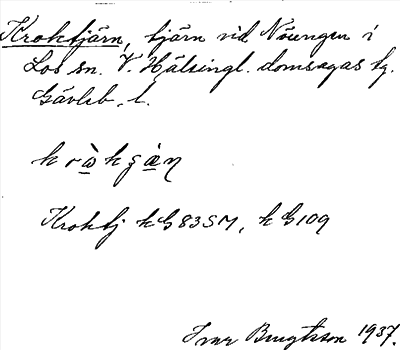 Kroktjärn, tjärn vid Nöungen i
Los sn. V. Hälsingl. domsagas tg.
Gävleb. l.
Kroktj kG83SM, kG109
Ivar Bengtsson 1937.